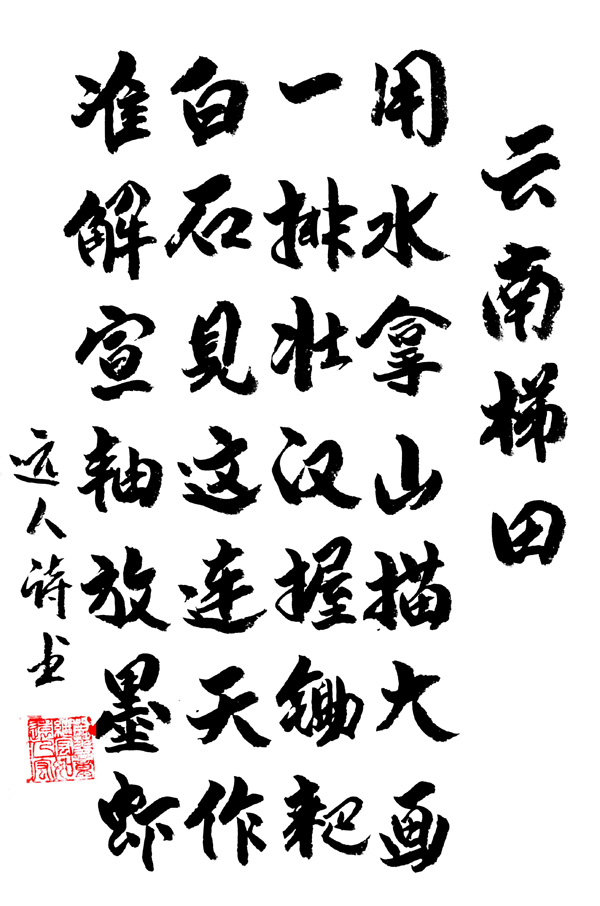 云南梯田
用水拿山描大画
一排壮汉握锄耙
白石见这连天作
准解宣轴放墨虾
远人诗书